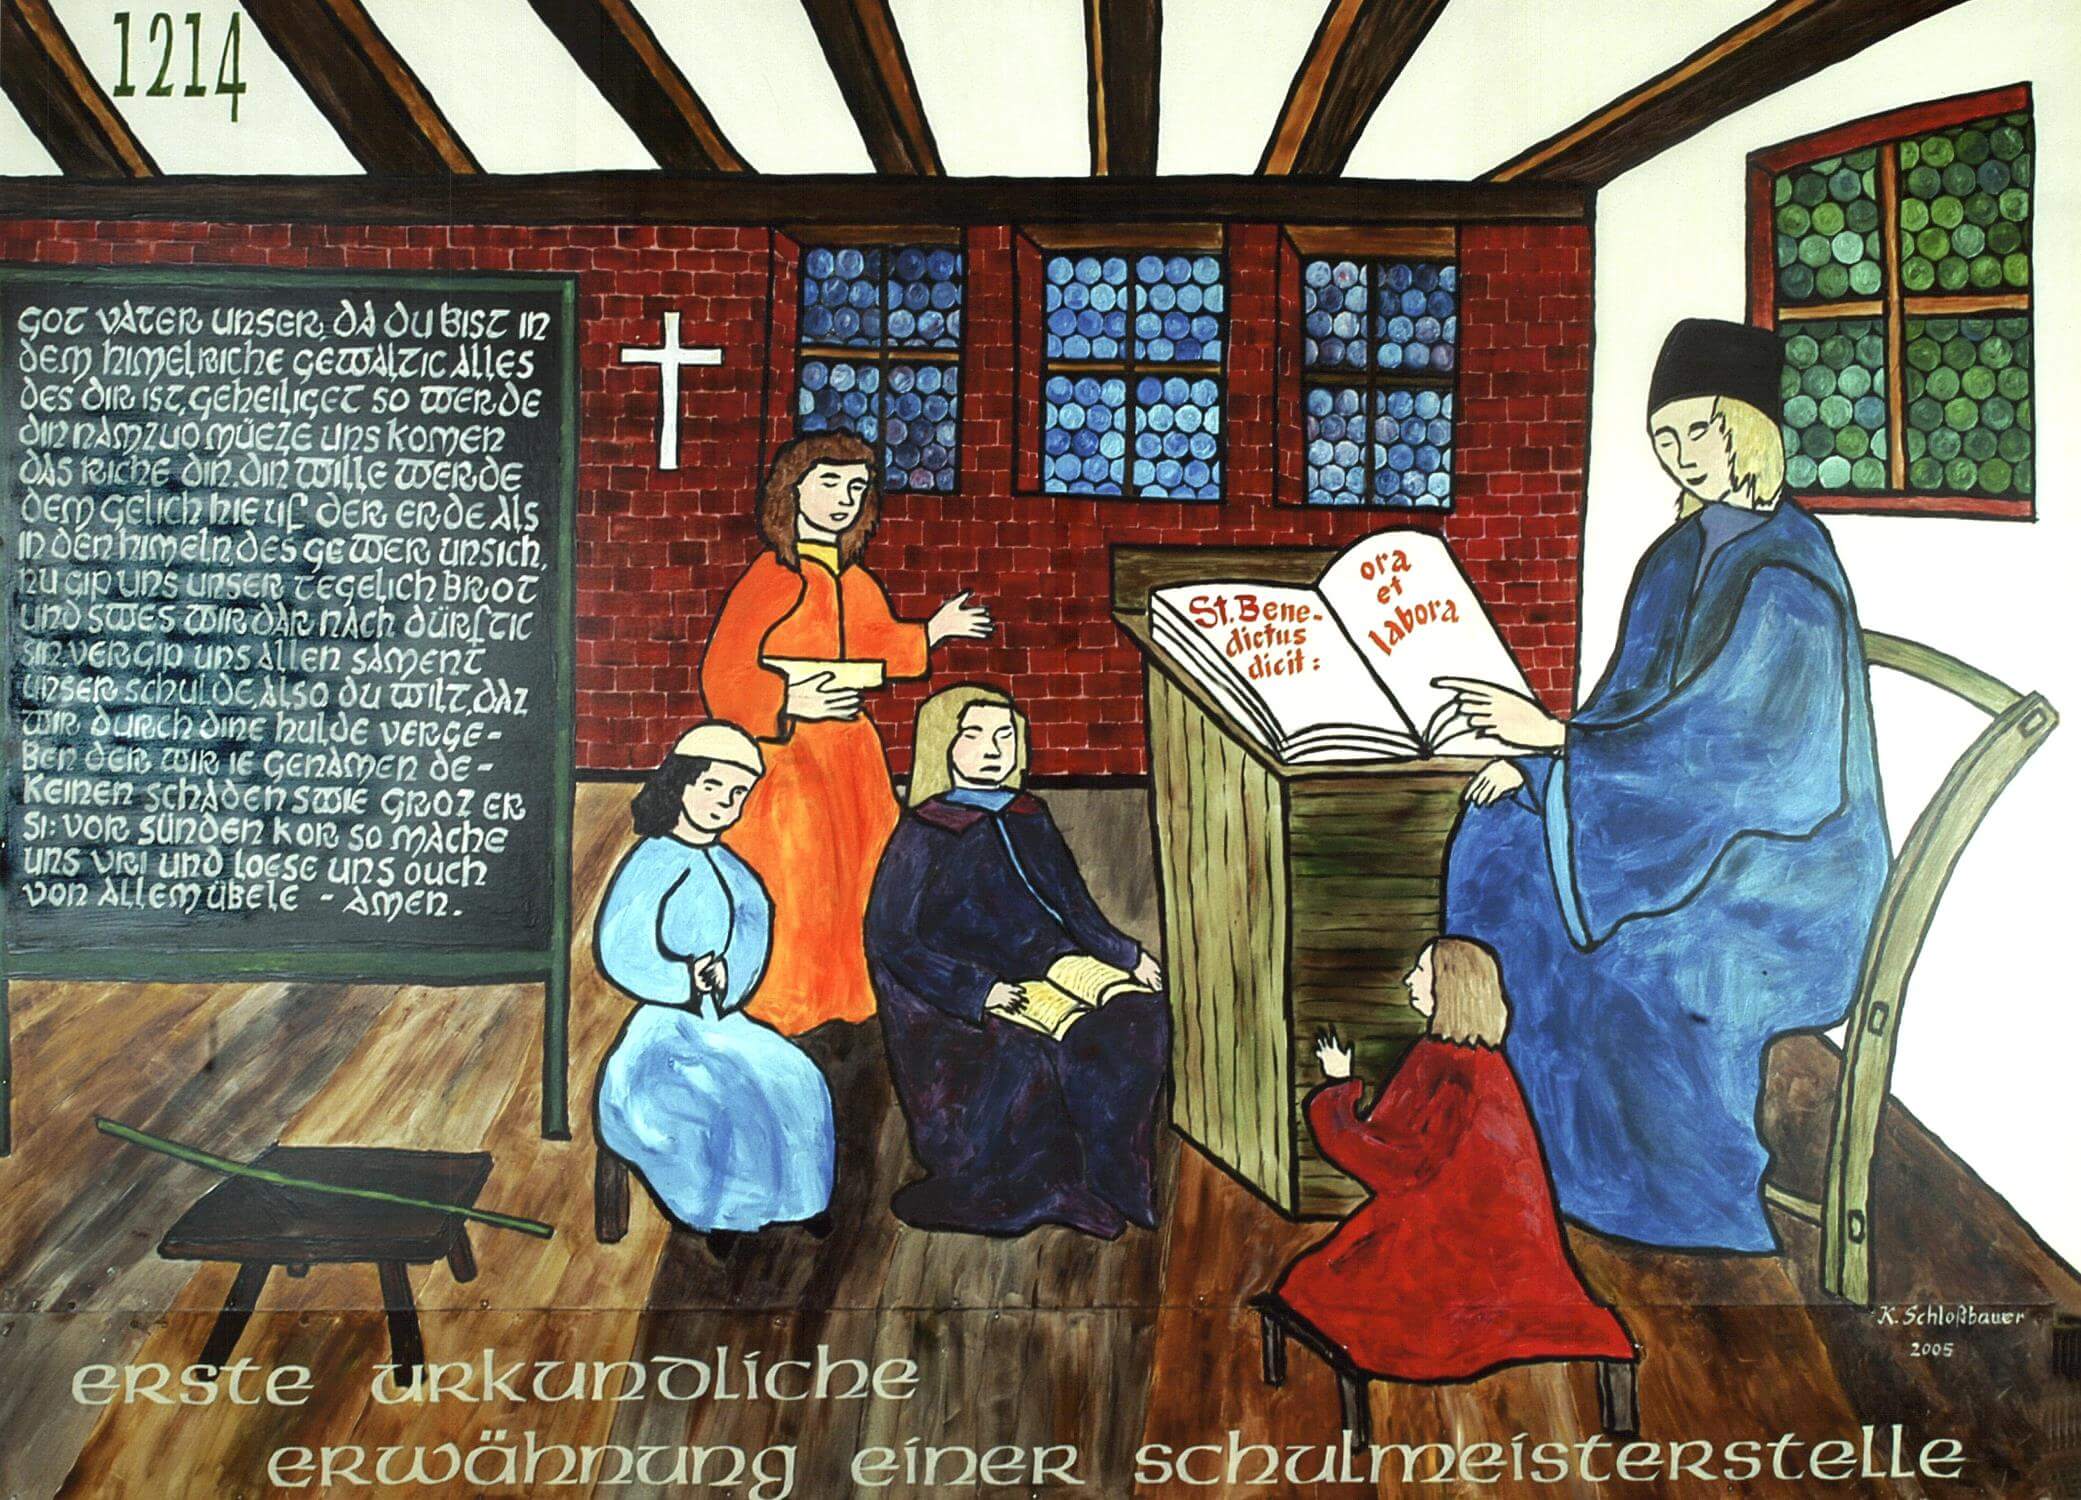 1214
GOT VATER UNSER, DA DU BIST IN
DEM HIMELRICHE GEWALTIC ALLES
DES DIR IST, GEHEILIGET SO WERDE
DIN NAM, ZUO MÜEZE UNS KOMEN
DAS RICHE DIN. DIN WILLE WERDE
DEM GELICH HIE UF DER ERDE ALS
IN DEN HIMELN, DES GEWER UNSICH,
NU GIP UNS UNSER TEGELICH BROT
UND SWES WIR DAR NACH DÜRFTIC
SIN. VERGIP UNS ALLEN SAMENT
UNSER SCHULDE, ALSO DU WILT, DAZ
WIR DURCH DINE HULDE VERGE-
BEN DER WIR IE GENAMEN DE-
KEINEN SCHADEN SWIE GROZ ER
SI: VOR SÜNDEN KOR SO MACHE
UNS VRI UND LOESE UNS OUCH
VON ALLEM ÜBELE - AMEN.
St. Bene-
dictus
dicit:
ora
et
labora
K. Schloßbauer
2005
erste urkundliche
erwähnung einer schulmeisterstelle